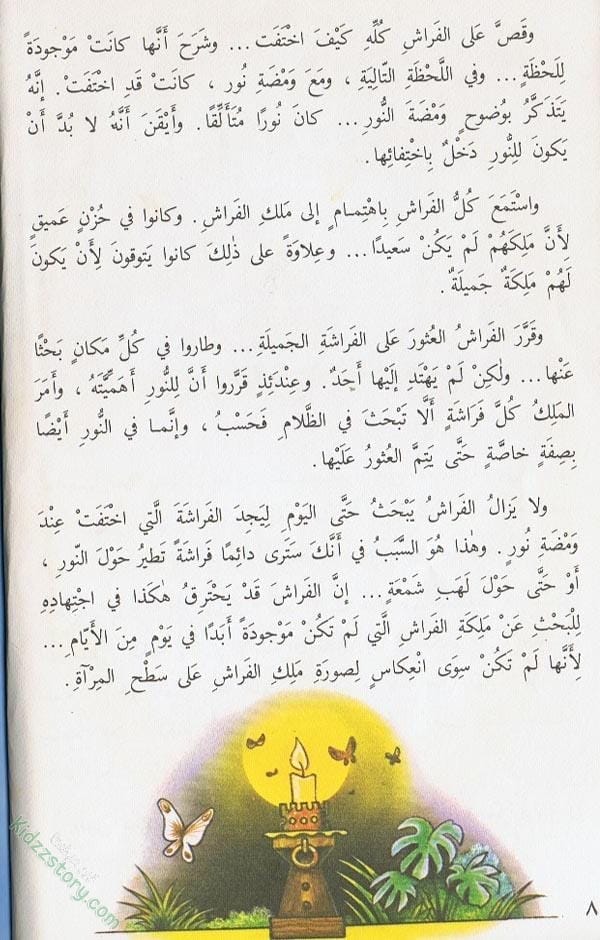 وقَصَّ عَلى الفَراشِ كُلِّهِ كَيْفَ اخْتَفَت ... وشَرَحَ أَنَّها كانَتْ مَوْجودَةً
لِلَحْظَةٍ ... وفي اللَّحْظَةِ التّالِيَةِ ، ومَعَ وَمْضَةِ نُور ، كانَتْ قَدِ اخْتَفَتْ. إِنَّهُ
يَتَذَكَّرُ بِوُضوحٍ وَمْضَةَ النُّورِ ... كانَ نُورًا مُتَأَلِّقًا. وأَيْقَنَ أَنَّهُ لا بُدَّ أَنْ
يَكونَ لِلنُّورِ دَخْلٌ بِاخْتِفائِها.
واسْتَمَعَ كُلُّ الفَراشِ بِاهْتِمامٍ إلى مَلِكِ الفَراشِ. وكانوا في حُزْنٍ عَميقٍ
لِأَنَّ مَلِكَهُمْ لَمْ يَكُنْ سَعيدًا ... وعِلاوَةً على ذٰلِكَ كانوا يَتوقونَ لِأَنْ يَكونَ
لَهُمْ مَلِكَةٌ جَميلَةٌ.
وقَرَّرَ الفَراشُ العُثورَ عَلى الفَراشَةِ الجَميلَةِ ... وطاروا في كُلِّ مَكانٍ بَحْثًا
عَنْها ... ولٰكِنْ لَمْ يَهْتَدِ إلَيْها أَحَدٌ. وعِنْدَئِذٍ قَرَّروا أَنَّ لِلنُّورِ أَهَمِّيَّتَهُ ، وأَمَرَ
المَلِكُ كُلَّ فَراشَةٍ أَلَّا تَبْحَثَ في الظَّلامِ فَحَسْبُ ، وإنَّما في النُّورِ أَيْضًا
بِصِفَةٍ خاصَّةٍ حَتَّى يَتِمَّ العُثورُ عَلَيْها.
ولا يَزالُ الفَراشُ يَبْحَثُ حَتَّى اليَوْمِ لِيَجِدَ الفَراشَةَ الَّتي اخْتَفَتْ عِنْدَ
وَمْضَةِ نُورٍ. وهٰذا هُوَ السَّبَبُ في أَنَّكَ سَتَرى دائِمًا فَراشَةً تَطيرُ حَوْلَ النّورِ ،
أَوْ حَتَّى حَوْلَ لَهَبِ شَمْعَةٍ ... إنَّ الفَراشَ قَدْ يَحْتَرِقُ هٰكَذا في اجْتِهادِهِ
لِلْبَحْثِ عَنْ مَلِكَةِ الفَراشِ الَّتي لَمْ تَكُنْ مَوْجودَةً أَبَدًا في يَوْمٍ مِنَ الأَيّامِ ...
لِأَنَّها لَمْ تَكُنْ سِوَى انْعِكاسٍ لِصورَةِ مَلِكِ الفَراشِ عَلى سَطْحِ المِرْآةِ.
Kidzzstory.com
٨